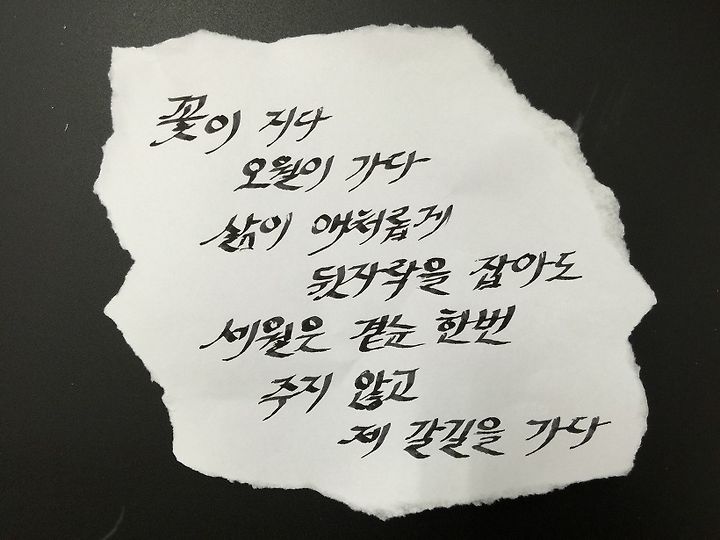 꽃이 지다
오월이 가다
삶이 애처롭게
뒷자락을 잡아도
세월은 곁눈 한번
주지 않고
제 갈길을 가다